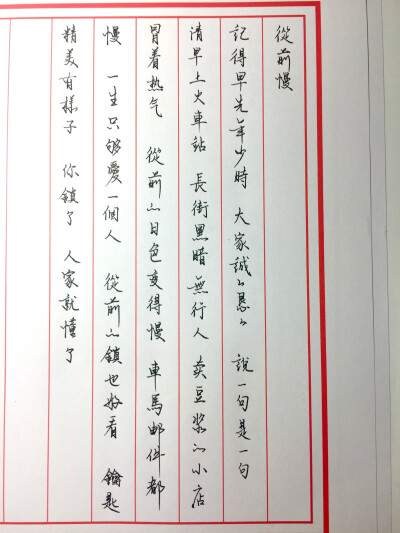 從前慢
記得早先年少時 大家誠誠懇懇 說一句是一句
清早上火車站 長街黑暗無行人 卖豆浆的小店
冒着热气 從前的日色变得慢 車馬邮件都
慢 一生只够愛一個人 從前的鎖也好看 鑰匙
精美有樣子 你鎖了 人家就懂了